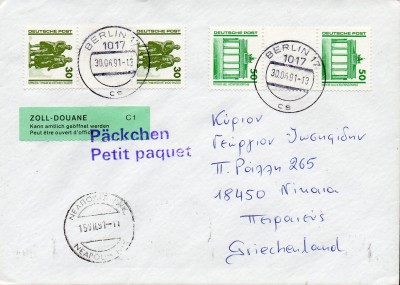 DEUTSCHE POST
DEUTSCHE POST
DEUTSCHE POST
DEUTSCHE POST
30
30
50
50
BERLIN 17
1017
30.04.91-13
ce
BERLIN 17
1017
30.04.91-13
ce
ZOLL-DOUANE C1
Kann amtlich geöffnet werden
Peut être ouvert d'office
Päckchen
Petit paquet
Κύριον
Γεώργιον Ιωσηφίδην
Π. Ράλλη 265
18450 Νίκαια
Πειραιεύς
Griechenland
ΝΕΑΠΟΛΙΣ
NEAPOLIS